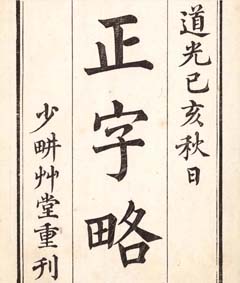 道光己亥秋日
正字略
少畊艸堂重刊